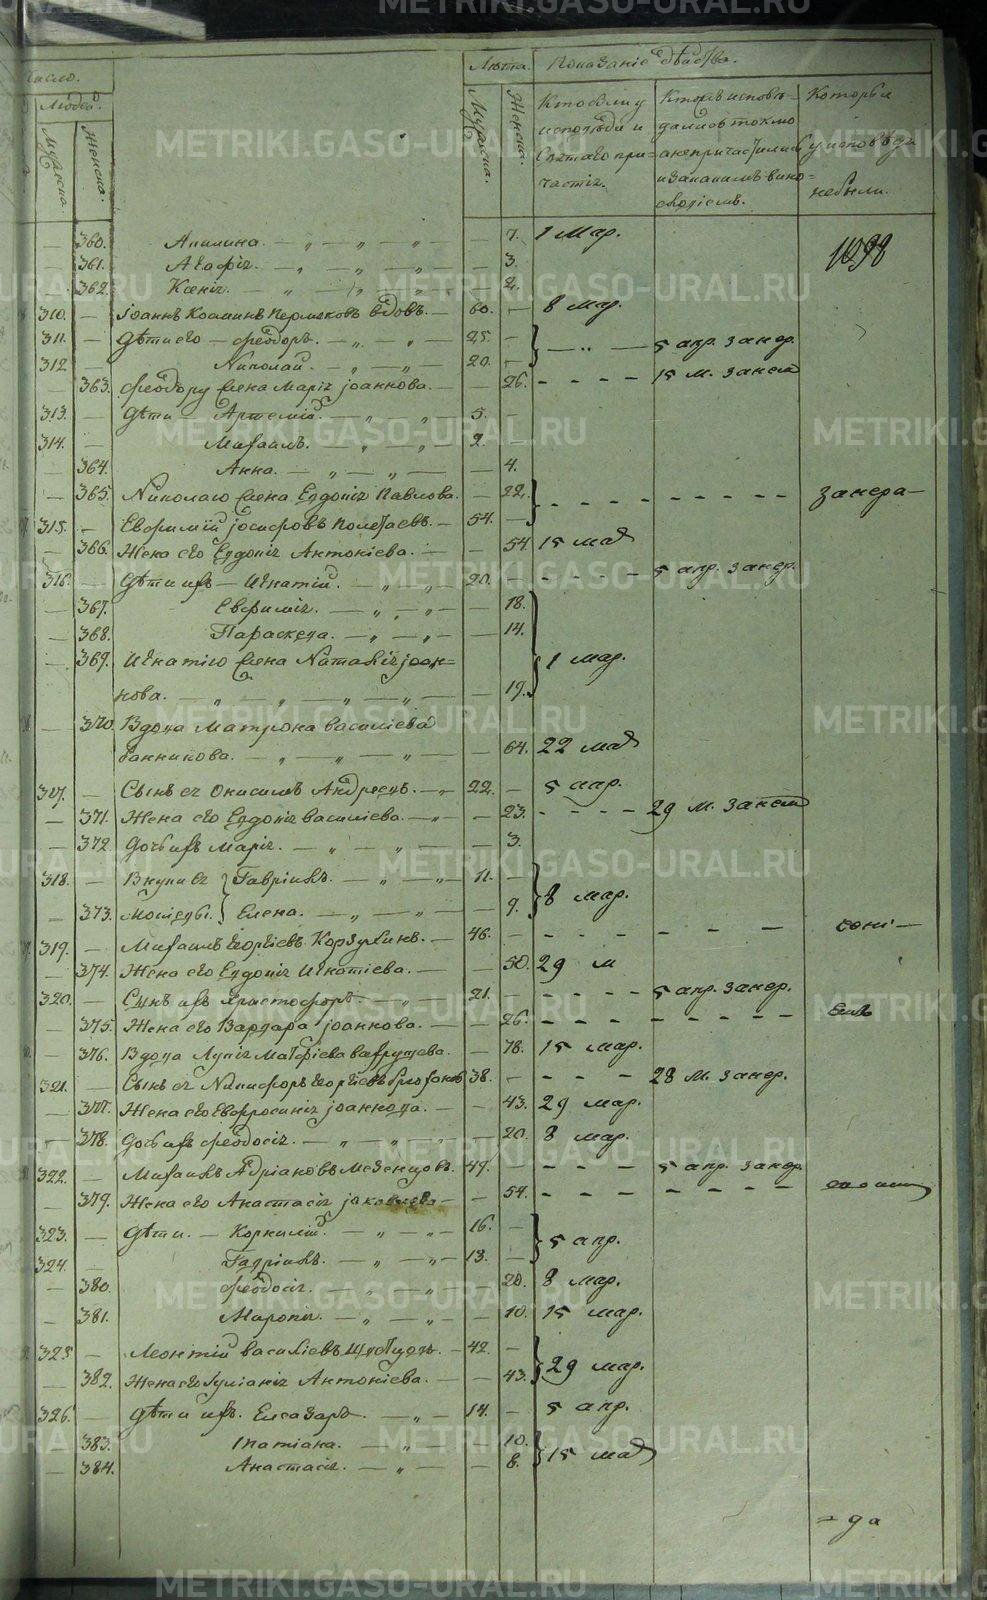 число.
Людей.
Мужеска.
Женска.
Лѣта.
Мужеска.
Женска.
Показаніе дѣйства.
Кто былъ у исповѣди и Святаго причастія.
Кто исповѣдался токмо а непричастился и за какимъ винословіемъ.
Которые у исповѣди небыли.
1098
— 360. Акилина. — „ — „ — — 7. 1 Мар.
— 361. Агафія. — „ — „ — — 3.
— 362. Ксенія. — „ — „ — — 2.
310. — Іоаннъ Косминъ Пермяковъ вдовъ. — 60. — 8 мар.
311. — Дѣти его — Ѳеодоръ. — „ — 25. — 5 апр. занер.
312. — Николай. — „ — „ — 20. —
— 363. Ѳеодору жена Марія Іоаннова. — — 26. — — — — 15 м. занем
313. — Дѣти — Артемій. — „ — „ — 5. —
314. — Михаилъ. — „ — „ — 2. —
— 364. Анна. — „ — „ — — 4.
— 365. Николаю жена Евдокія Павлова. — 22. — — — — — — занера—
315. — Евфимій Іосифовъ Полетаевъ. — 54. —
— 366. Жена его Евдокія Антоніева. — — 54. 15 мар
316. — Дѣти ихъ — Игнатій. — „ — „ — 20. — — — — 5 апр. занер.
— 367. Евфимія. — „ — „ — — 18.
— 368. Параскева. — „ — „ — — 14.
— 369. Игнатію жена Наталія Іоан=
нова. — „ — „ — „ — — 19. 1 мар.
— 370. Вдова Матрона Василіева
Банникова. — „ — „ — — 64. 22 мар
317. — Сынъ ея Онисимъ Андреевъ. — „ — 22. — 5 апр.
— 371. Жена его Евдокія Василіева. — „ — — 23. — — — 29 м. занем
— 372. Дочь ихъ Марія. — „ — „ — — 3.
318. — Внуки ея Гавріилъ. — „ — „ — 11. —
— 373. Елена. — „ — „ — — 9. 8 мар.
319. — Михаилъ Георгіевъ Корзухинъ. — 46. — — — — — — —
— 374. Жена его Евдокія Игнатіева. — — 50. 29 м
320. — Сынъ ихъ Христофоръ. — „ — 21. — — — 5 апр. занер.
— 375. Жена его Варвара Іоаннова. — — 26. — — — — — — —
— 376. Вдова Лукія Матфіева Вахрушева. — — 78. 15 мар.
321. — Сынъ ея Никифоръ Георгіевъ 38. — — — — 28 м. занер.
— 377. Жена его Евфросинія Іоаннова. — — 43. 29 мар.
— 378. Дочь ихъ Ѳеодосія. — „ — „ — — 20. 8 мар.
322. — Михаилъ Адріановъ Мезенцовъ. 47. — — — — 5 апр. занер.
— 379. Жена его Анастасія Іаковлева — — 54. — — — — — — —
323. — Дѣти. — Корнилій. — „ — „ — 16. —
324. — Гавріилъ. — „ — „ — 13. — 5 апр.
— 380. Ѳеодосія. — „ — „ — — 20. 8 мар.
— 381. — „ — „ — — 10. 15 мар.
325 — Леонтій Василіевъ — 42. —
— 382. Жена его Іуліанія Антоніева. — — 43. 29 мар.
326. — Дѣти ихъ. Елеазаръ. — „ — 14. — 5 апр.
— 383. Татіана. — „ — — 10.
— 384. Анастасія. — „ — — 8. 15 мар
= да
METRIKI.GASO-URAL.RU